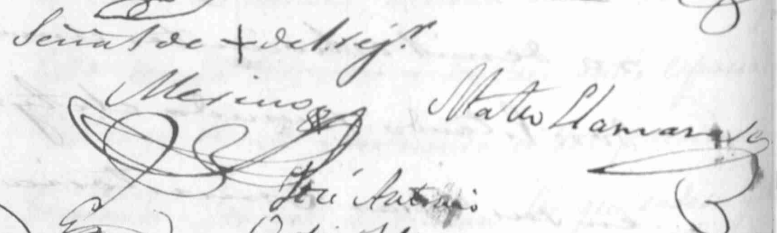 Señal de + del Regr.
Merino
Mateo Llamazares
José Antonio